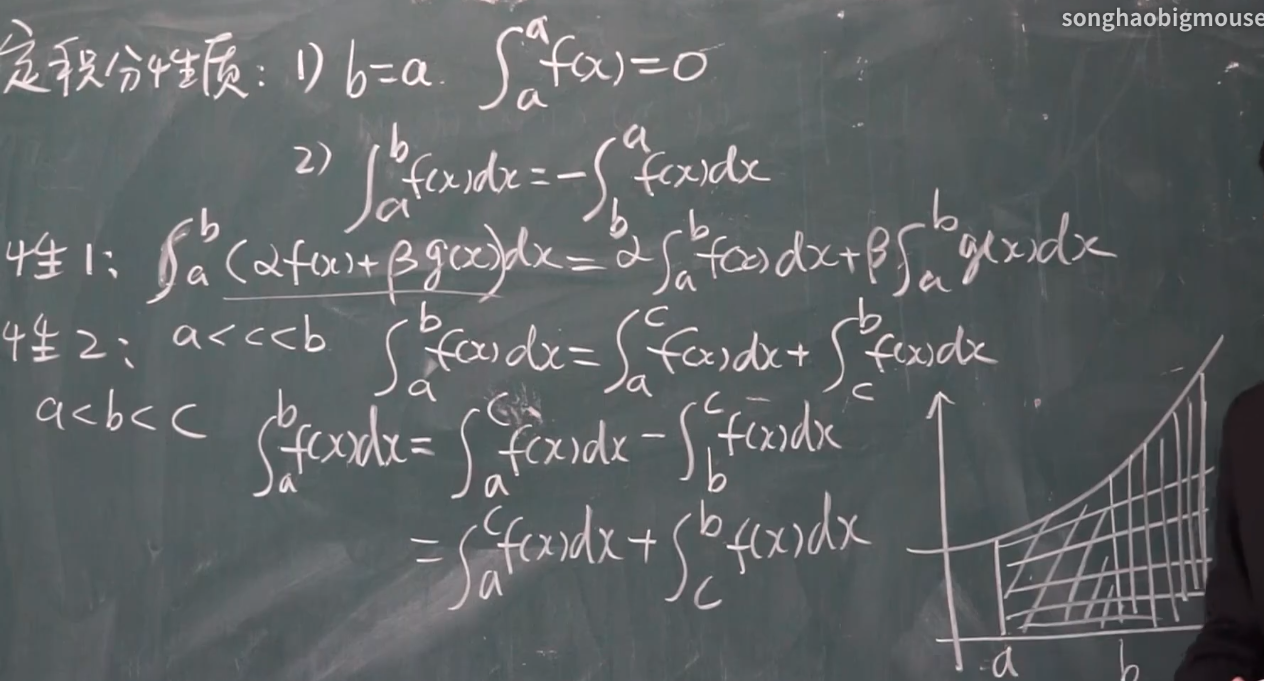 songhaobigmouse
定积分性质: 1) b=a. ∫ₐᵃ f(x)=0
2) ∫ₐᵇ f(x)dx = -∫_b^a f(x)dx
性1: ∫ₐᵇ (αf(x)+βg(x))dx = α∫ₐᵇ f(x)dx+β∫ₐᵇ g(x)dx
性2: a<c<b ∫ₐᵇ f(x)dx = ∫ₐᶜ f(x)dx + ∫_c^b f(x)dx
a<b<c ∫ₐᵇ f(x)dx = ∫ₐᶜ f(x)dx - ∫_b^c f(x)dx
= ∫ₐᶜ f(x)dx + ∫_c^b f(x)dx
a b